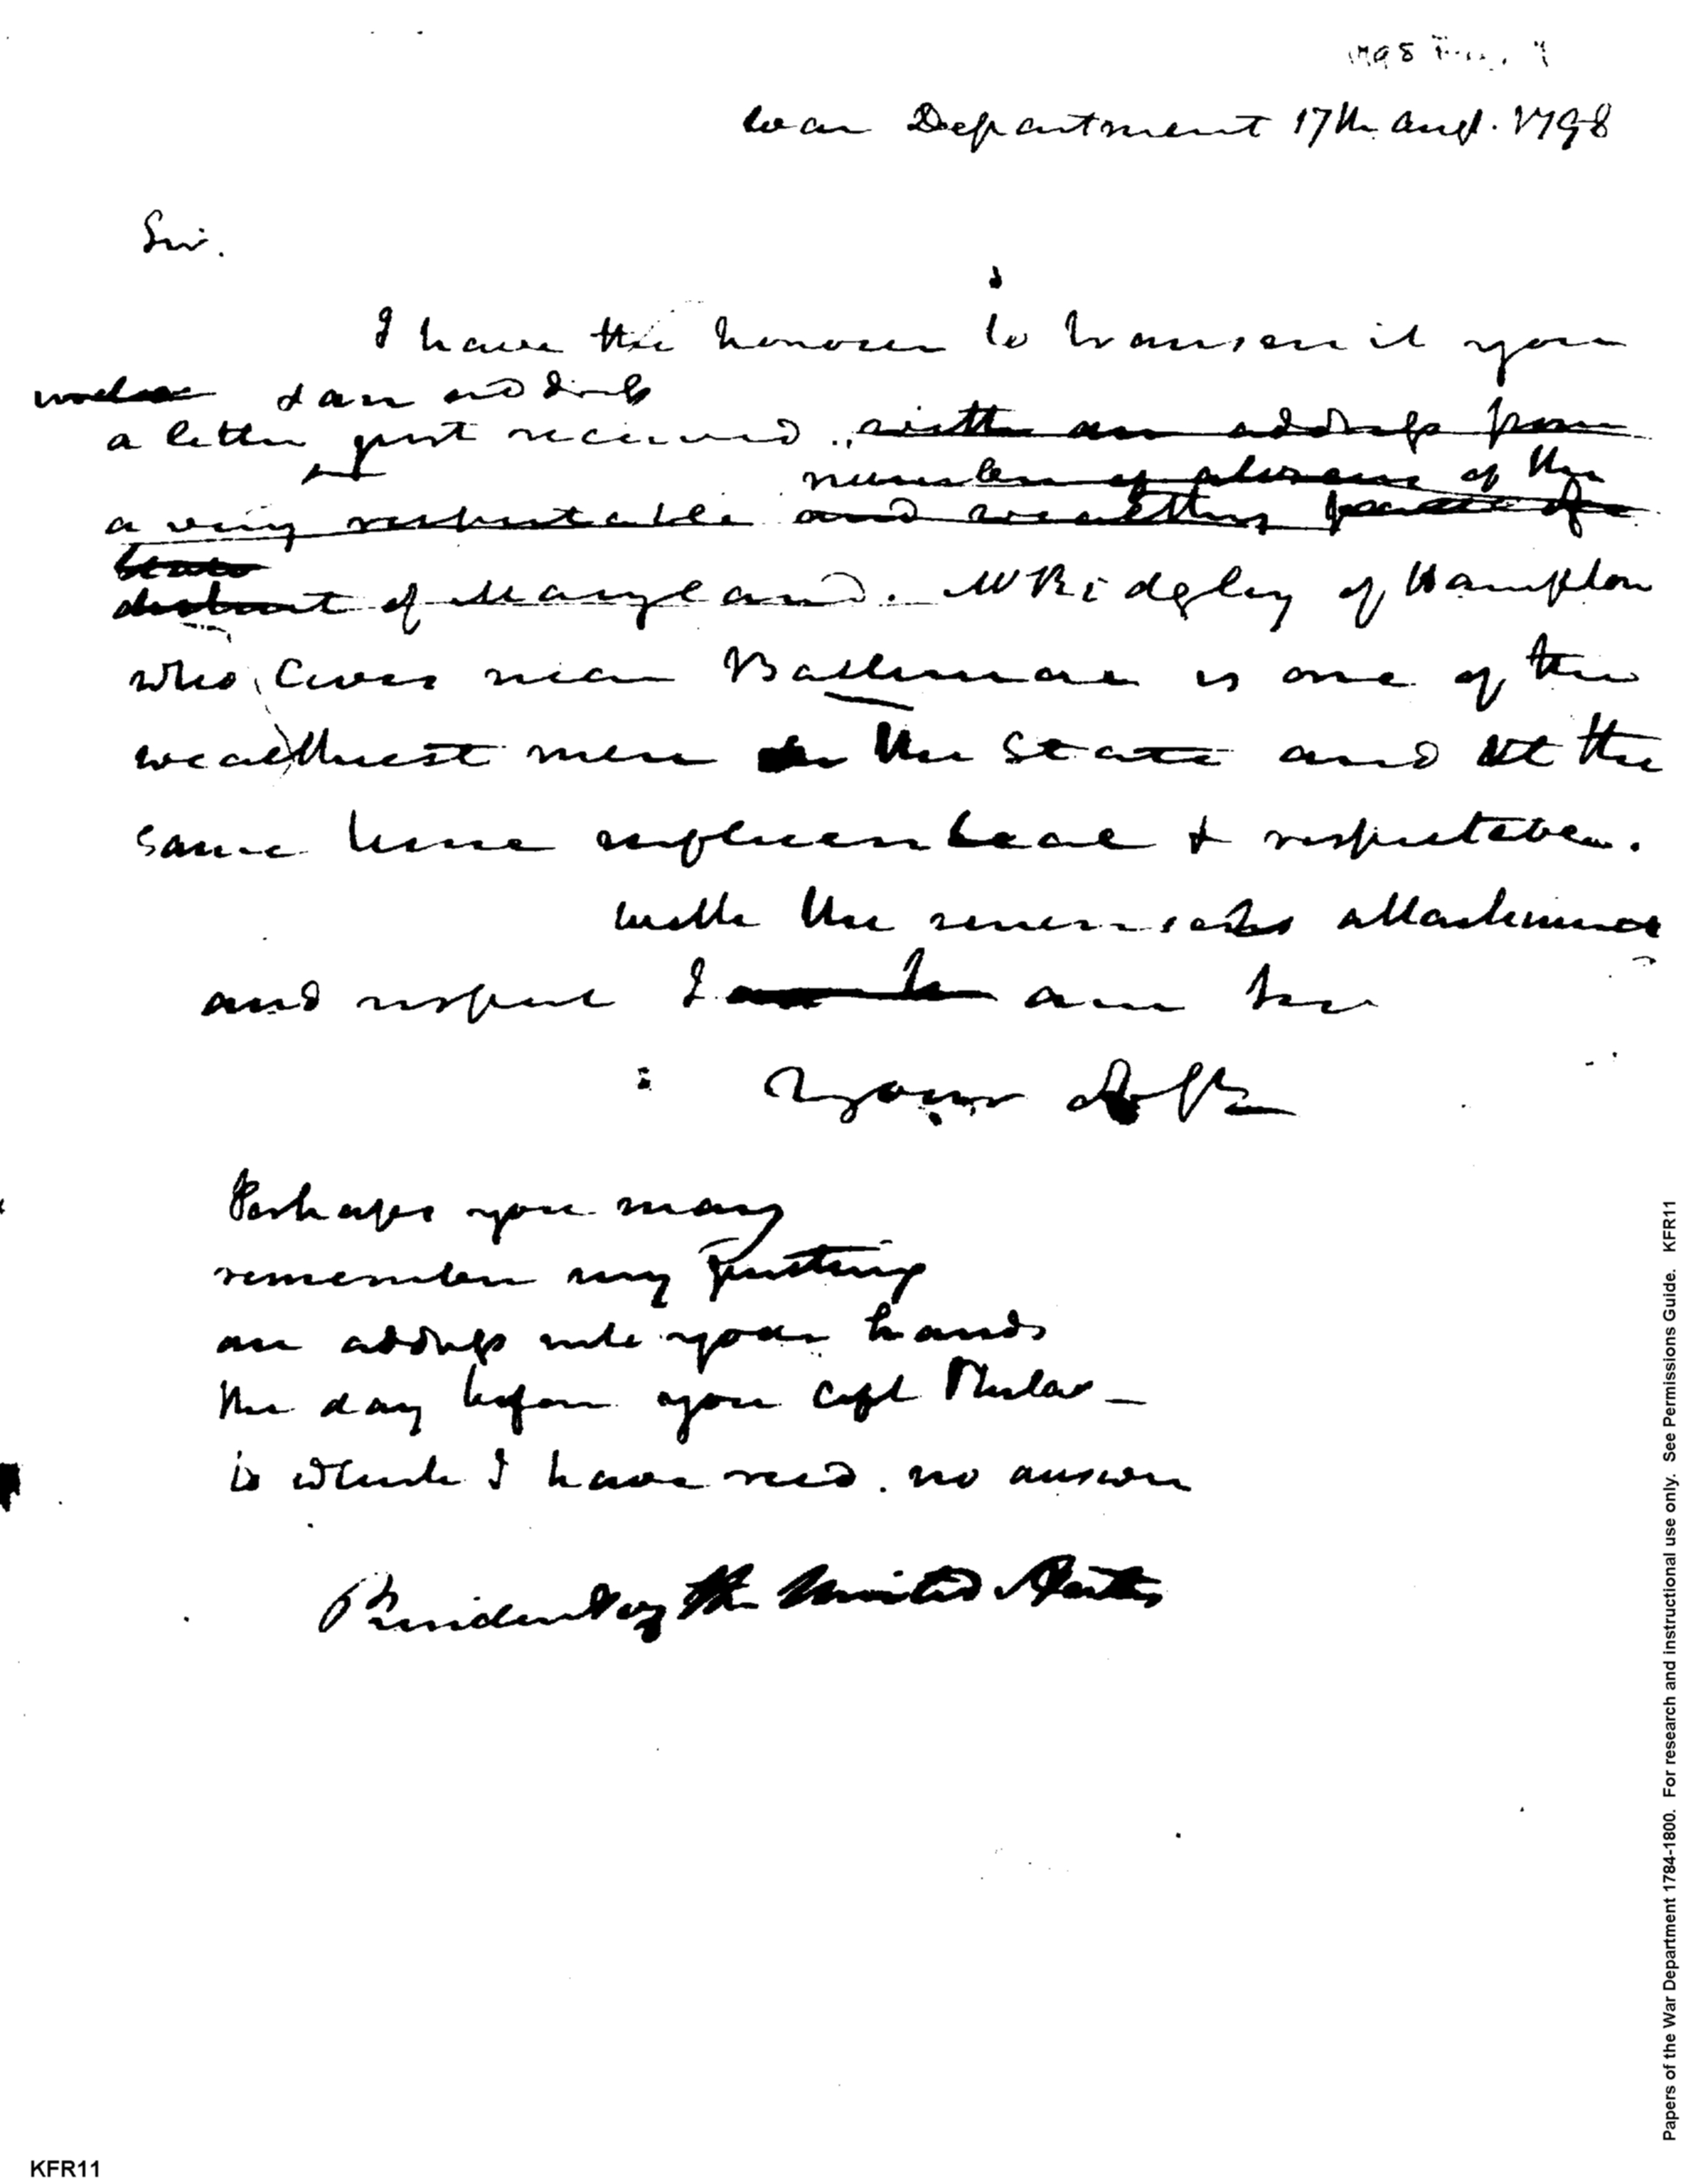 War Department 17th Augt. 1798
Sir.
I have the honour to transmit you
& an address
a letter just received with an address from
number of persons of the
a very respectable and wealthy part of
State
district of Maryland. Mr Ridgley of Hampton
who lives near Baltimore is one of the
wealthiest men in the State and at the
same time influential & respectable.
with the sincerest attachment
and respect I am
Your
Perhaps you may
remember my putting
an address into your hands
the day before you left Philad
to which I have recd. no answer
President of the United States
Papers of the War Department 1784-1800. For research and instructional use only. See Permissions Guide. KFR11
KFR11